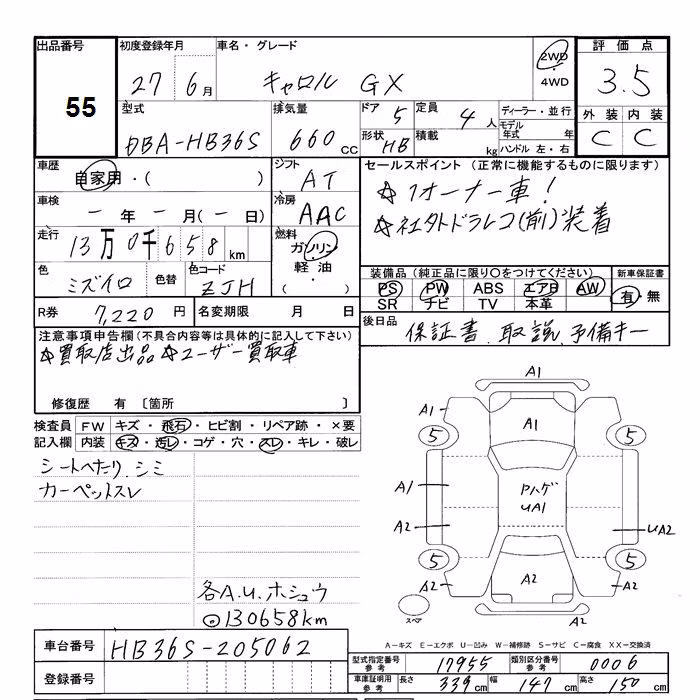 出品番号 初度登録年月 車名・グレード 評価点
55 27 6月 キャロル GX 2WD 4WD 3.5
型式 排気量 ドア 5 定員 4人 ディーラー・並行 外装 内装
DBA-HB36S 660cc 形状 HB 積載 kg モデル年式 年 ハンドル 左・右 C C
車歴 自家用・( ) シフト AT セールスポイント(正常に機能するものに限ります)
車検 ー年ー月(ー日) 冷房 AAC ☆1オーナー車!
走行 13万0千658km 燃料 ガソリン 軽油 ( ) ☆社外ドラレコ(前)装着
色 ミズイロ 色替 色コード ZJH 装備品(純正品に限り○をつけてください) 新車保証書
PS PW ABS エアB AW 有・無
SR ナビ TV 本革
R券 7,220円 名変期限 月 日 後日品 保証書、取説、予備キー
注意事項申告欄(不具合内容等は具体的に記入して下さい)
☆買取店出品☆ユーザー買取車
修復歴 有 〔箇所 〕
検査員記入欄 FW キズ・飛石・ヒビ割・リペア跡・×要
内装 キズ・汚レ・コゲ・穴・スレ・キレ・破レ
シートヘたり、シミ
カーペットスレ
各A.U.ホシュウ
◎130658km
A1
A1 A1
5 5
A1 Pハゲ UA1
A2 UA2
5 5
A2 A2 A2
スペア A2
A−キズ E−エクボ U−凹み W−補修跡 S−サビ C−腐食 XX−交換済
車台番号 HB36S-205062
型式指定番号 参考 17955 類別区分番号 参考 0006
登録番号
車庫証明用 参考 長さ 339cm 幅 147cm 高さ 150cm